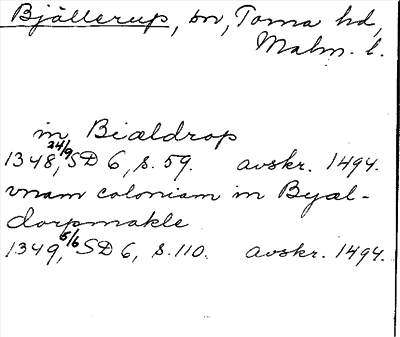 Bjällerup, sn, Torna hd,
Malm. l.
in Biældrop
1348, 24/9 SD 6, s. 59. avskr. 1494.
vnam coloniam in Byæl-
dorpmakle
1349, 5/6 SD 6, s. 110. avskr. 1494.